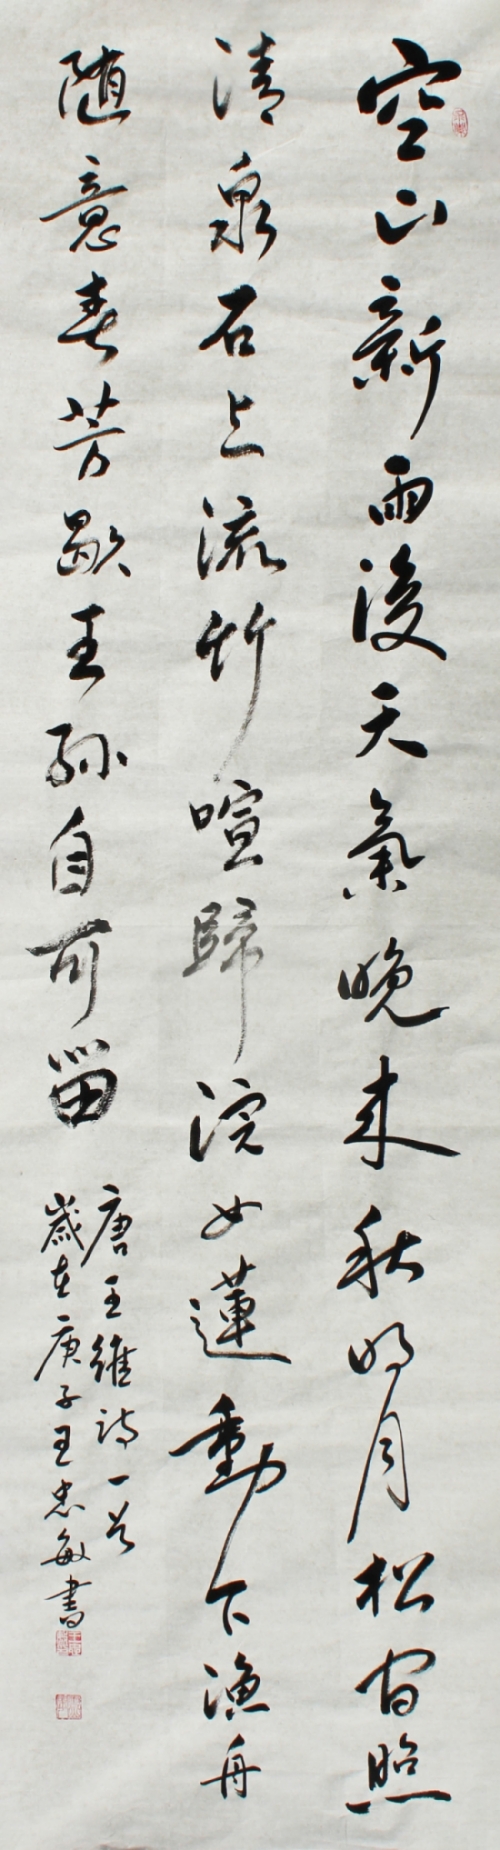 空山新雨後天氣晚來秋明月松間照
清泉石上流竹喧歸浣女蓮動下漁舟
隨意春芳歇王孫自可留
唐王維詩一首
歲在庚子王忠敏書